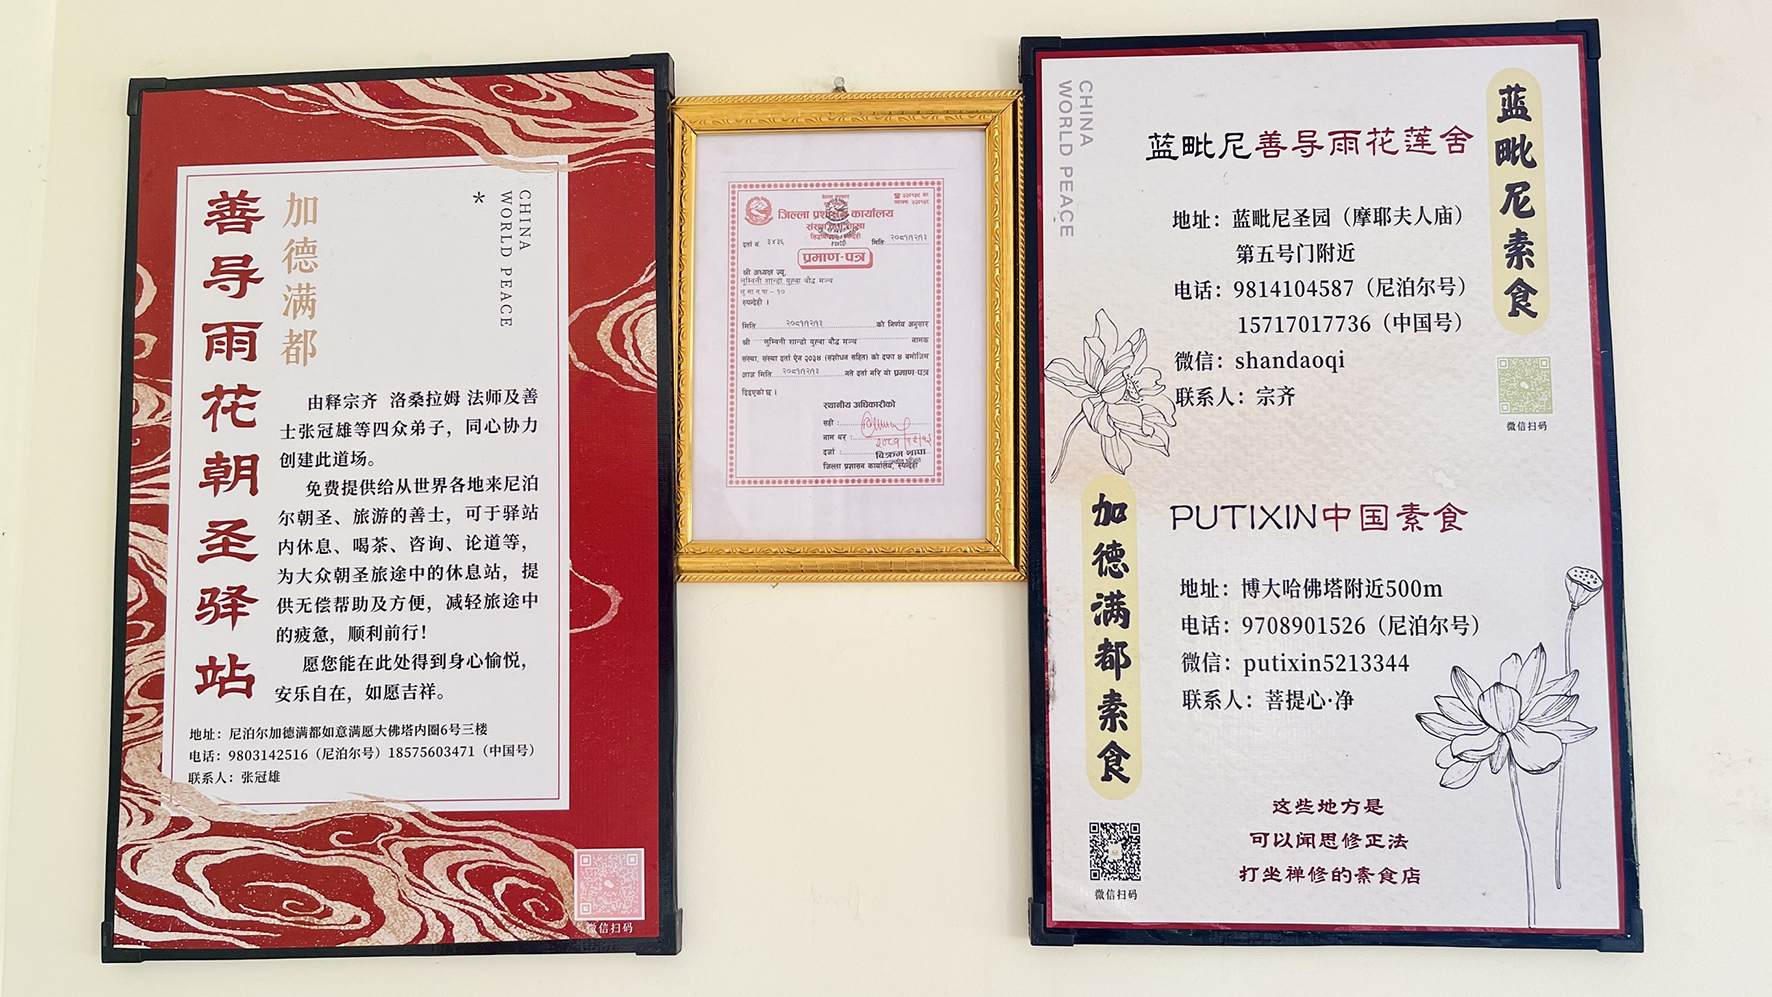 加德满都
善导雨花朝圣驿站
*
CHINA
WORLD PEACE
由释宗齐 洛桑拉姆 法师及善
士张冠雄等四众弟子，同心协力
创建此道场。
免费提供给从世界各地来尼泊
尔朝圣、旅游的善士，可于驿站
内休息、喝茶、咨询、论道等，
为大众朝圣旅途中的休息站，提
供无偿帮助及方便，减轻旅途中
的疲惫，顺利前行！
愿您能在此处得到身心愉悦，
安乐自在，如愿吉祥。
地址：尼泊尔加德满都如意满愿大佛塔内圈6号三楼
电话：9803142516（尼泊尔号）18575603471（中国号）
联系人：张冠雄
微信扫码
जिल्ला प्रशासन कार्यालय
दर्ता नं. ३४३६
मिति: २०८१/१२/१३
प्रमाण-पत्र
श्री अध्यक्ष ज्यू,
लुम्बिनी शान्दो युहवा बौद्ध मञ्च
लु.सा.न.पा.-१०
रुपन्देही ।
मिति २०८१/१२/१३ को निर्णय अनुसार
श्री लुम्बिनी शान्दो युहवा बौद्ध मञ्च नामक
संस्था, संस्था दर्ता ऐन २०३४ (संशोधन सहित) को दफा ४ बमोजिम
आज मिति २०८१/१२/१३ गते दर्ता गरि यो प्रमाण-पत्र
दिइएको छ ।
स्थानीय अधिकारीको
सही :
नाम थर :
दर्जा :
जिल्ला प्रशासन कार्यालय, रुपन्देही
CHINA
WORLD PEACE
蓝毗尼素食
蓝毗尼善导雨花莲舍
地址：蓝毗尼圣园（摩耶夫人庙）
第五号门附近
电话：9814104587（尼泊尔号）
15717017736（中国号）
微信：shandaoqi
联系人：宗齐
微信扫码
加德满都素食
PUTIXIN中国素食
地址：博大哈佛塔附近500m
电话：9708901526（尼泊尔号）
微信：putixin5213344
联系人：菩提心·净
这些地方是
可以闻思修正法
打坐禅修的素食店
微信扫码